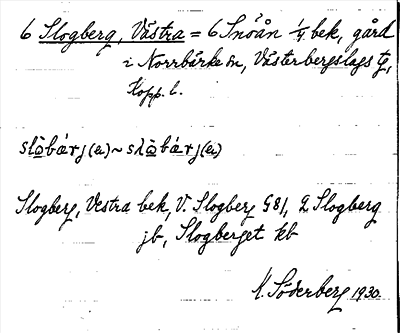 6 Slogberg, Västra = 6 Snöån 1/4 bek, gård
i Norrbärke sn, Västerbergslags tg,
Kopp. l.
slòbárj(a) ~ slòbárj(a)
Slogberg, Vestra bek, V. Slogberg G81, 2 Slogberg
jb, Slogberget kb
K. Söderberg 1930.